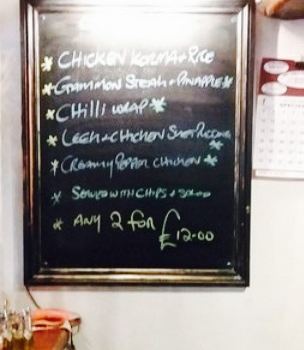 * CHICKEN KORMA + RICE
* GAMMON STEAK + PINEAPPLE *
* CHILLI WRAP *
* LEEK + CHICKEN SUET PUDDING *
* CREAMY PEPPER CHICKEN *
* SERVED WITH CHIPS + SALAD
* ANY 2 FOR £12.00